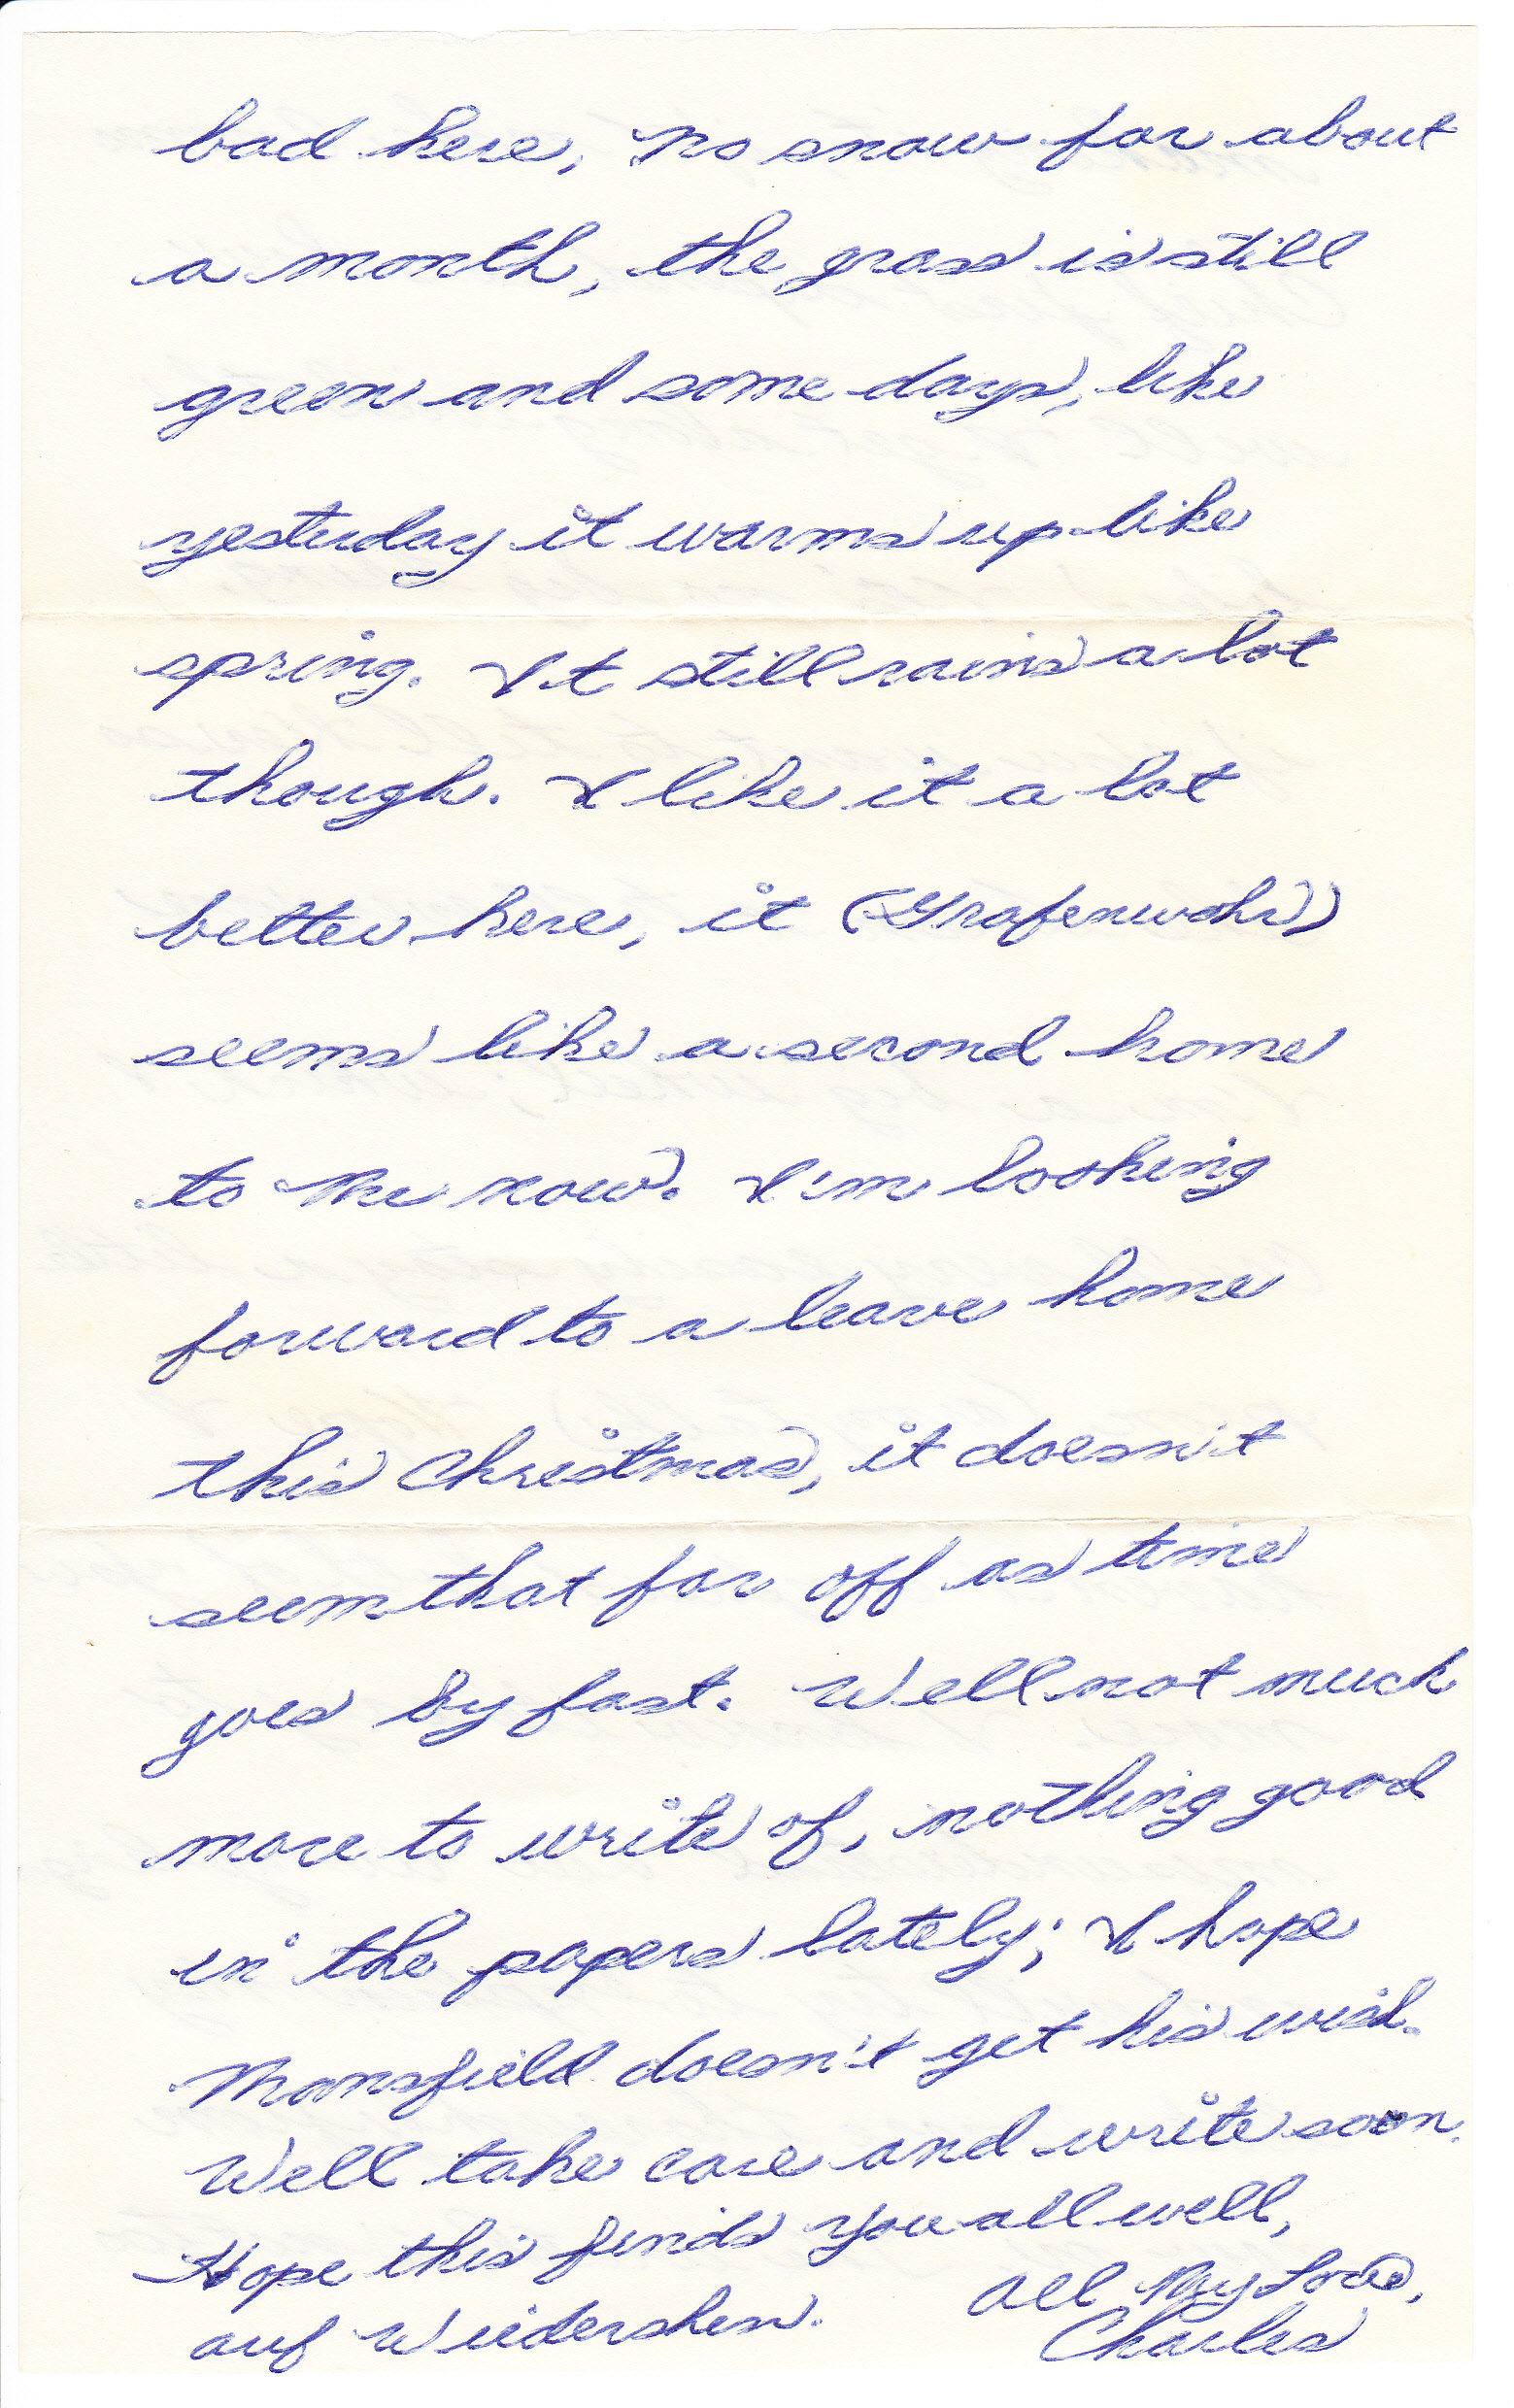 bad here, no snow for about
a month, the grass is still
green and some days, like
yesterday it warms up like
spring. It still rains a lot
though. I like it a lot
better here, it (Grafenwohr)
seems like a second home
to me now. I'm looking
forward to a leave home
this Christmas, it doesn't
seem that far off as time
goes by fast. Well not much
more to write of, nothing good
in the papers lately; I hope
Mansfield doesn't get his wish.
Well take care and write soon.
Hope this finds you all well,
All My Love,
auf Wiedershen.
Charles